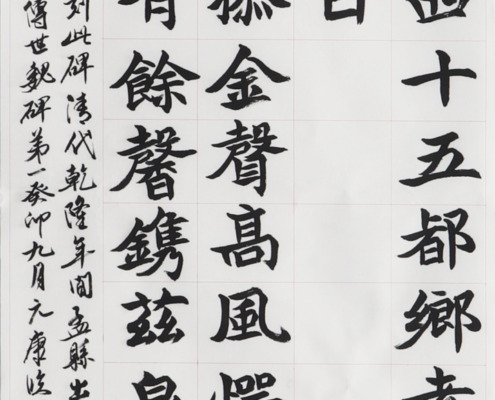 十五都鄉
金聲高風
餘馨鐫茲
刻此碑清代乾隆年間孟縣出
傳世魏碑第一癸卯九月元康臨